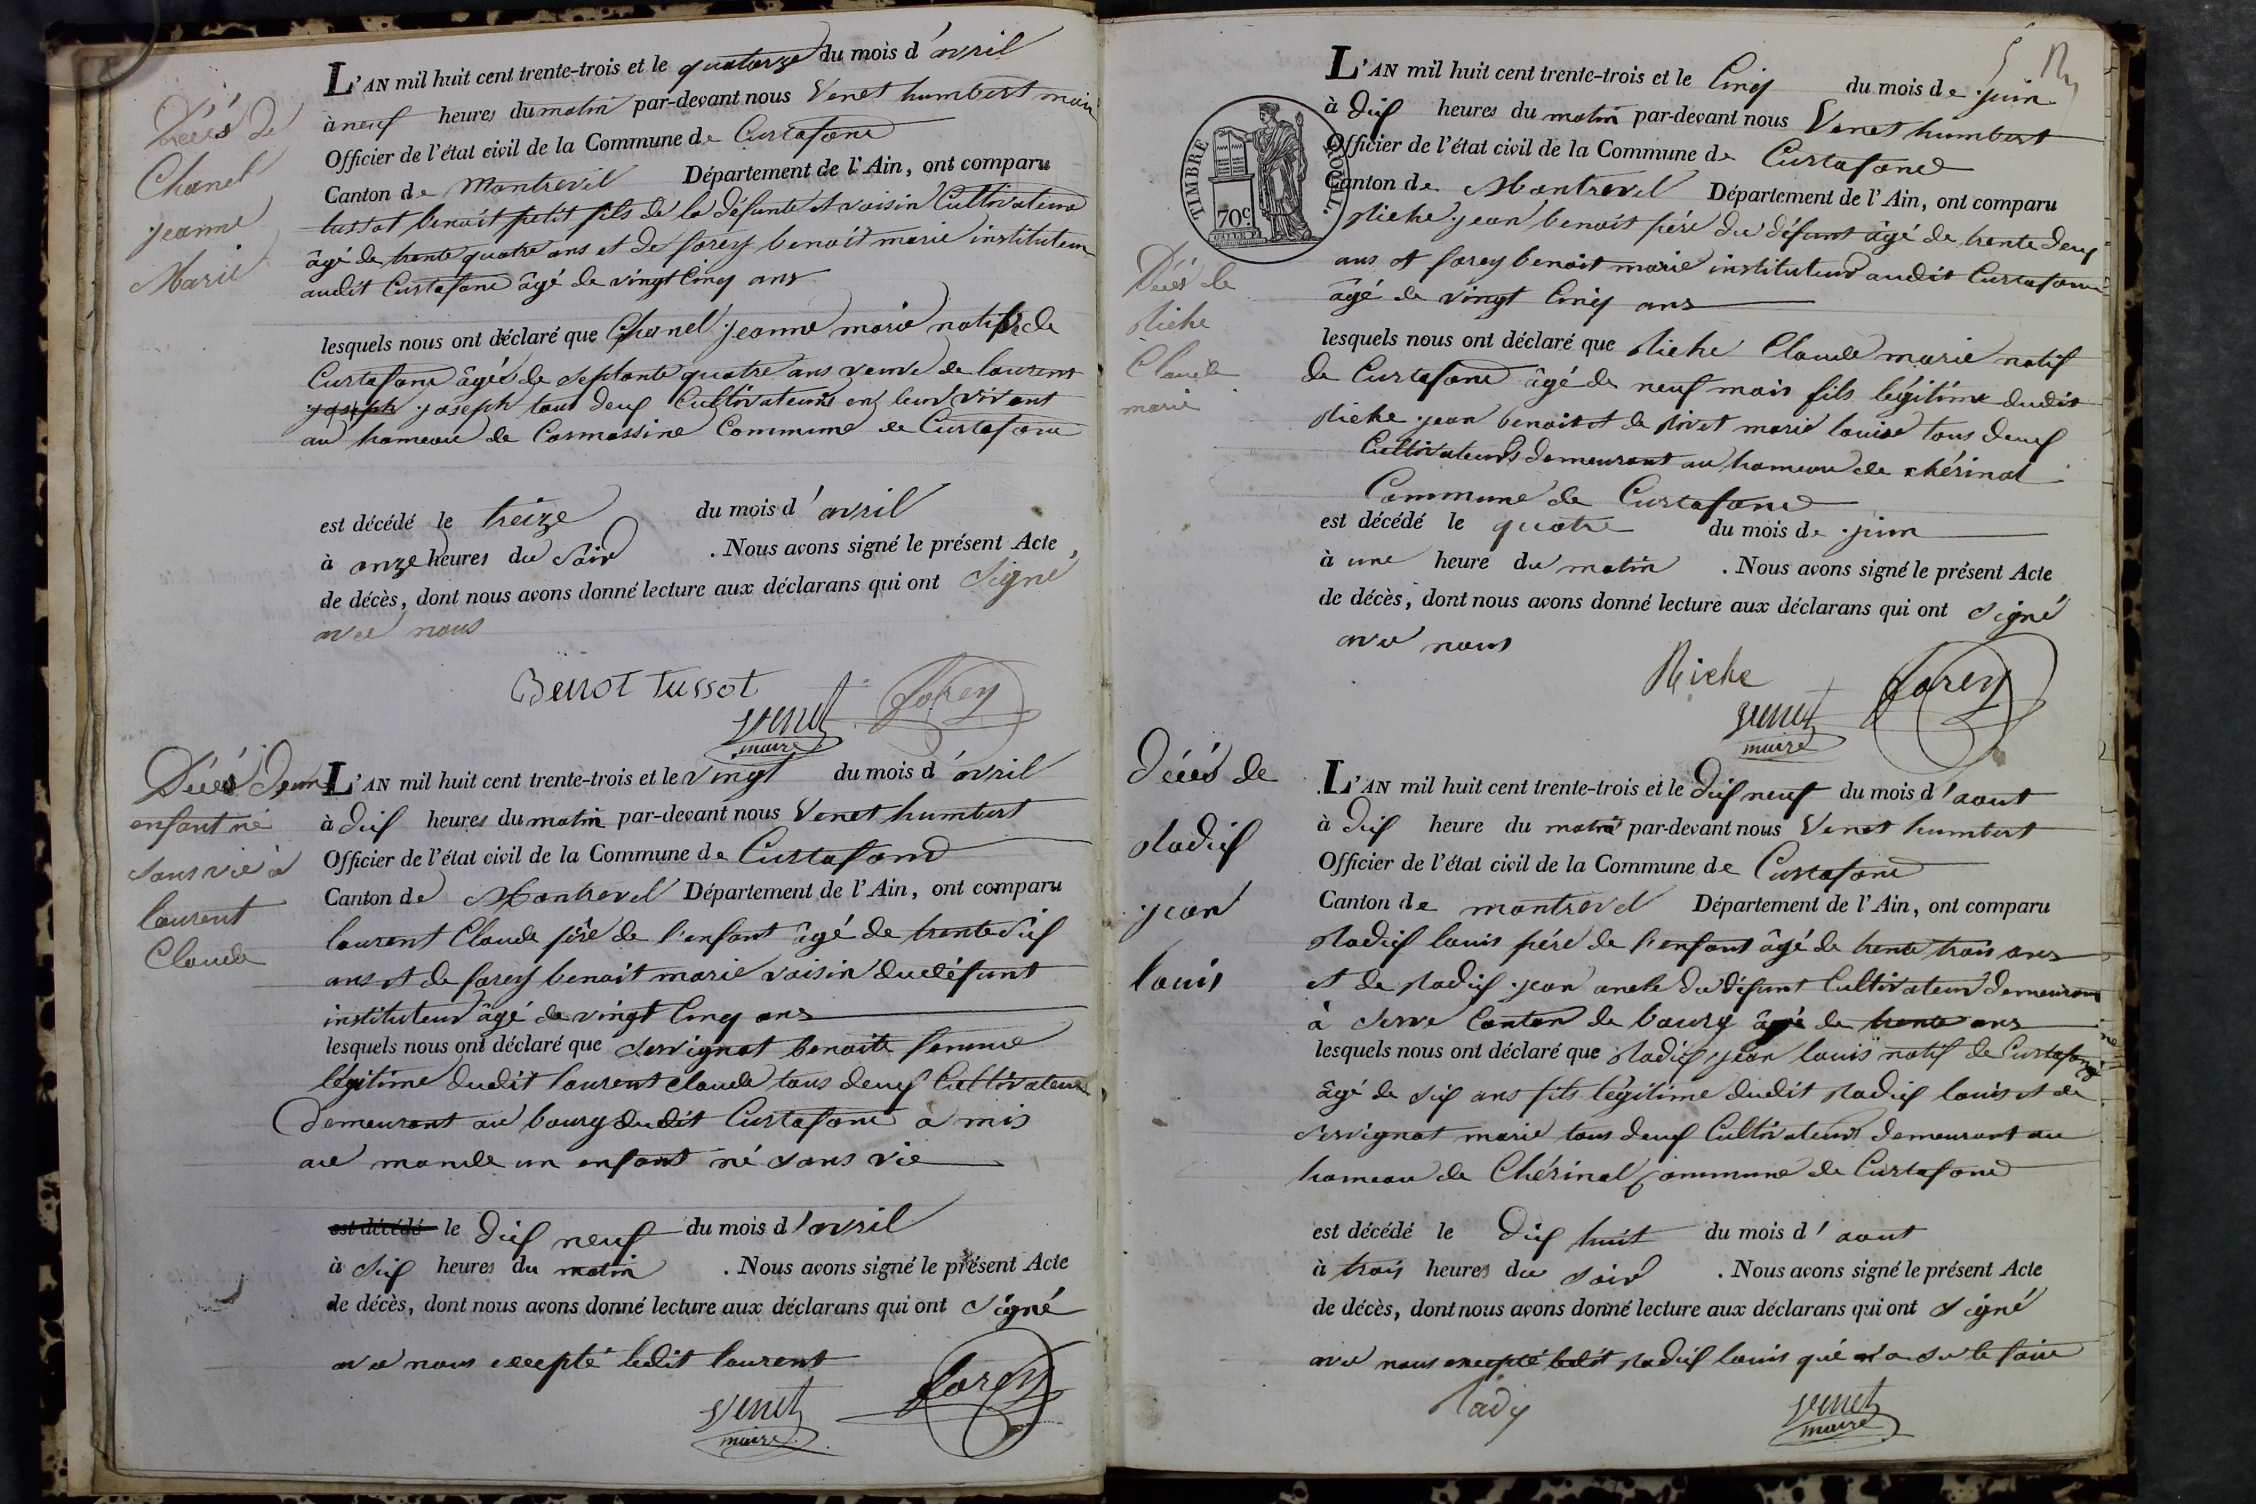 Décès de
Chanel
jeanne
Marie
L'AN mil huit cent trente-trois et le quatorze du mois d'avril
à neuf heures du matin par-devant nous Venet humbert maire
Officier de l'état civil de la Commune de Curtafond
Canton de Montrevel Département de l'Ain, ont comparu
tussot benoit petit fils de la défunte et voisin Cultivateur
âgé de trente quatre ans et de forey benoit marie instituteur
audit Curtafond âgé de vingt Cinq ans
lesquels nous ont déclaré que Chanel jeanne marie native de
Curtafond âgée de septante quatre ans veuve de laurent
joseph joseph tous deux Cultivateurs en leur vivant
au hameau de Cormassine Commune de Curtafond
est décédé le treize du mois d'avril
à onze heures du soir . Nous avons signé le présent Acte
de décès, dont nous avons donné lecture aux déclarans qui ont signé
avec nous
Benoit Tussot
Venet
maire
forey
Décès d'un
enfant né
sans vie à
laurent
Claude
L'AN mil huit cent trente-trois et le vingt du mois d'avril
à dix heures du matin par-devant nous Venet humbert
Officier de l'état civil de la Commune de Curtafond
Canton de Montrevel Département de l'Ain, ont comparu
laurent Claude père de l'enfant âgé de trente six
ans et de forey benoit marie voisin du défunt
instituteur âgé de vingt Cinq ans
lesquels nous ont déclaré que servignat benoite femme
légitime dudit laurent claude tous deux Cultivateurs
demeurant au bourg dudit Curtafond a mis
au monde un enfant né sans vie
est décédé le dix neuf du mois d'avril
à six heures du matin . Nous avons signé le présent Acte
de décès, dont nous avons donné lecture aux déclarans qui ont signé
avec nous excepté ledit laurent
Venet
maire
forey
5
TIMBRE ROYAL.
70c
Décès de
Riche
Claude
marie
L'AN mil huit cent trente-trois et le Cinq du mois de juin
à dix heures du matin par-devant nous Venet humbert
Officier de l'état civil de la Commune de Curtafond
Canton de Montrevel Département de l'Ain, ont comparu
Riche jean benoit père du défunt âgé de trente deux
ans et forey benoit marie instituteur audit Curtafond
âgé de vingt Cinq ans
lesquels nous ont déclaré que Riche Claude marie natif
de Curtafond âgé de neuf mois fils légitime dudit
Riche jean benoit et de Rivet marie louise tous deux
Cultivateurs demeurant au hameau de chérinal
Commune de Curtafond
est décédé le quatre du mois de juin
à une heure du matin . Nous avons signé le présent Acte
de décès, dont nous avons donné lecture aux déclarans qui ont signé
avec nous
Riche
Venet
maire
forey
décès de
Radix
jean
louis
L'AN mil huit cent trente-trois et le dix neuf du mois d'aout
à dix heure du matin par-devant nous Venet humbert
Officier de l'état civil de la Commune de Curtafond
Canton de montrevel Département de l'Ain, ont comparu
Radix louis père de l'enfant âgé de trente trois ans
et de Radix jean oncle du défunt Cultivateur demeurant
à Canton de bourg âgé de trente ans
lesquels nous ont déclaré que Radix jean louis natif de Curtafond
âgé de six ans fils légitime dudit Radix louis et de
servignat marie tous deux Cultivateurs demeurant au
hameau de Chérinal Commune de Curtafond
est décédé le dix huit du mois d'aout
à trois heures du soir . Nous avons signé le présent Acte
de décès, dont nous avons donné lecture aux déclarans qui ont signé
avec nous excepté ledit Radix louis qui n'a su le faire
Venet
maire